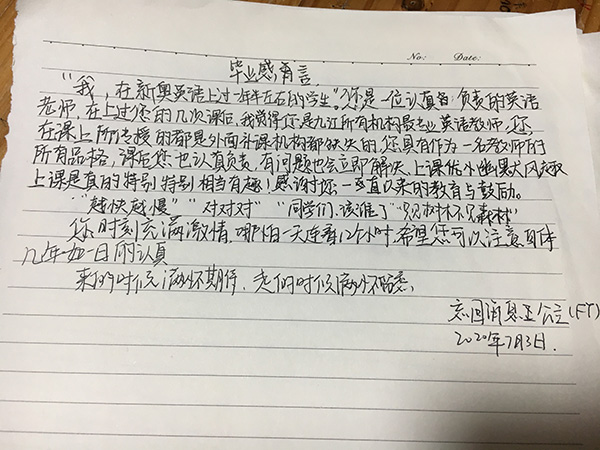 No: Date:
毕业感言
“我,在新奥英语上过一年半左右的学生”。您是一位认真且负责的英语
老师,在上过您的几次课后,我觉得您是九江所有机构最专业英语教师,您
在课上所传授的都是外面补课机构都缺失的,您具有作为一名教师的
所有品格,课后您也认真负责,有问题也会立即解决,上课优小幽默大风趣
上课是真的特别特别相当有趣!感谢对您一直以来的教育与鼓励。
“越快越慢” “对对对” “同学们,该谁了” “只见树林不见森林”
您时刻充满激情,哪怕一天连着12个小时,希望您可以注意身体
几年如一日的认真
来的时候满怀期待,走的时候满怀
2020年7月3日.